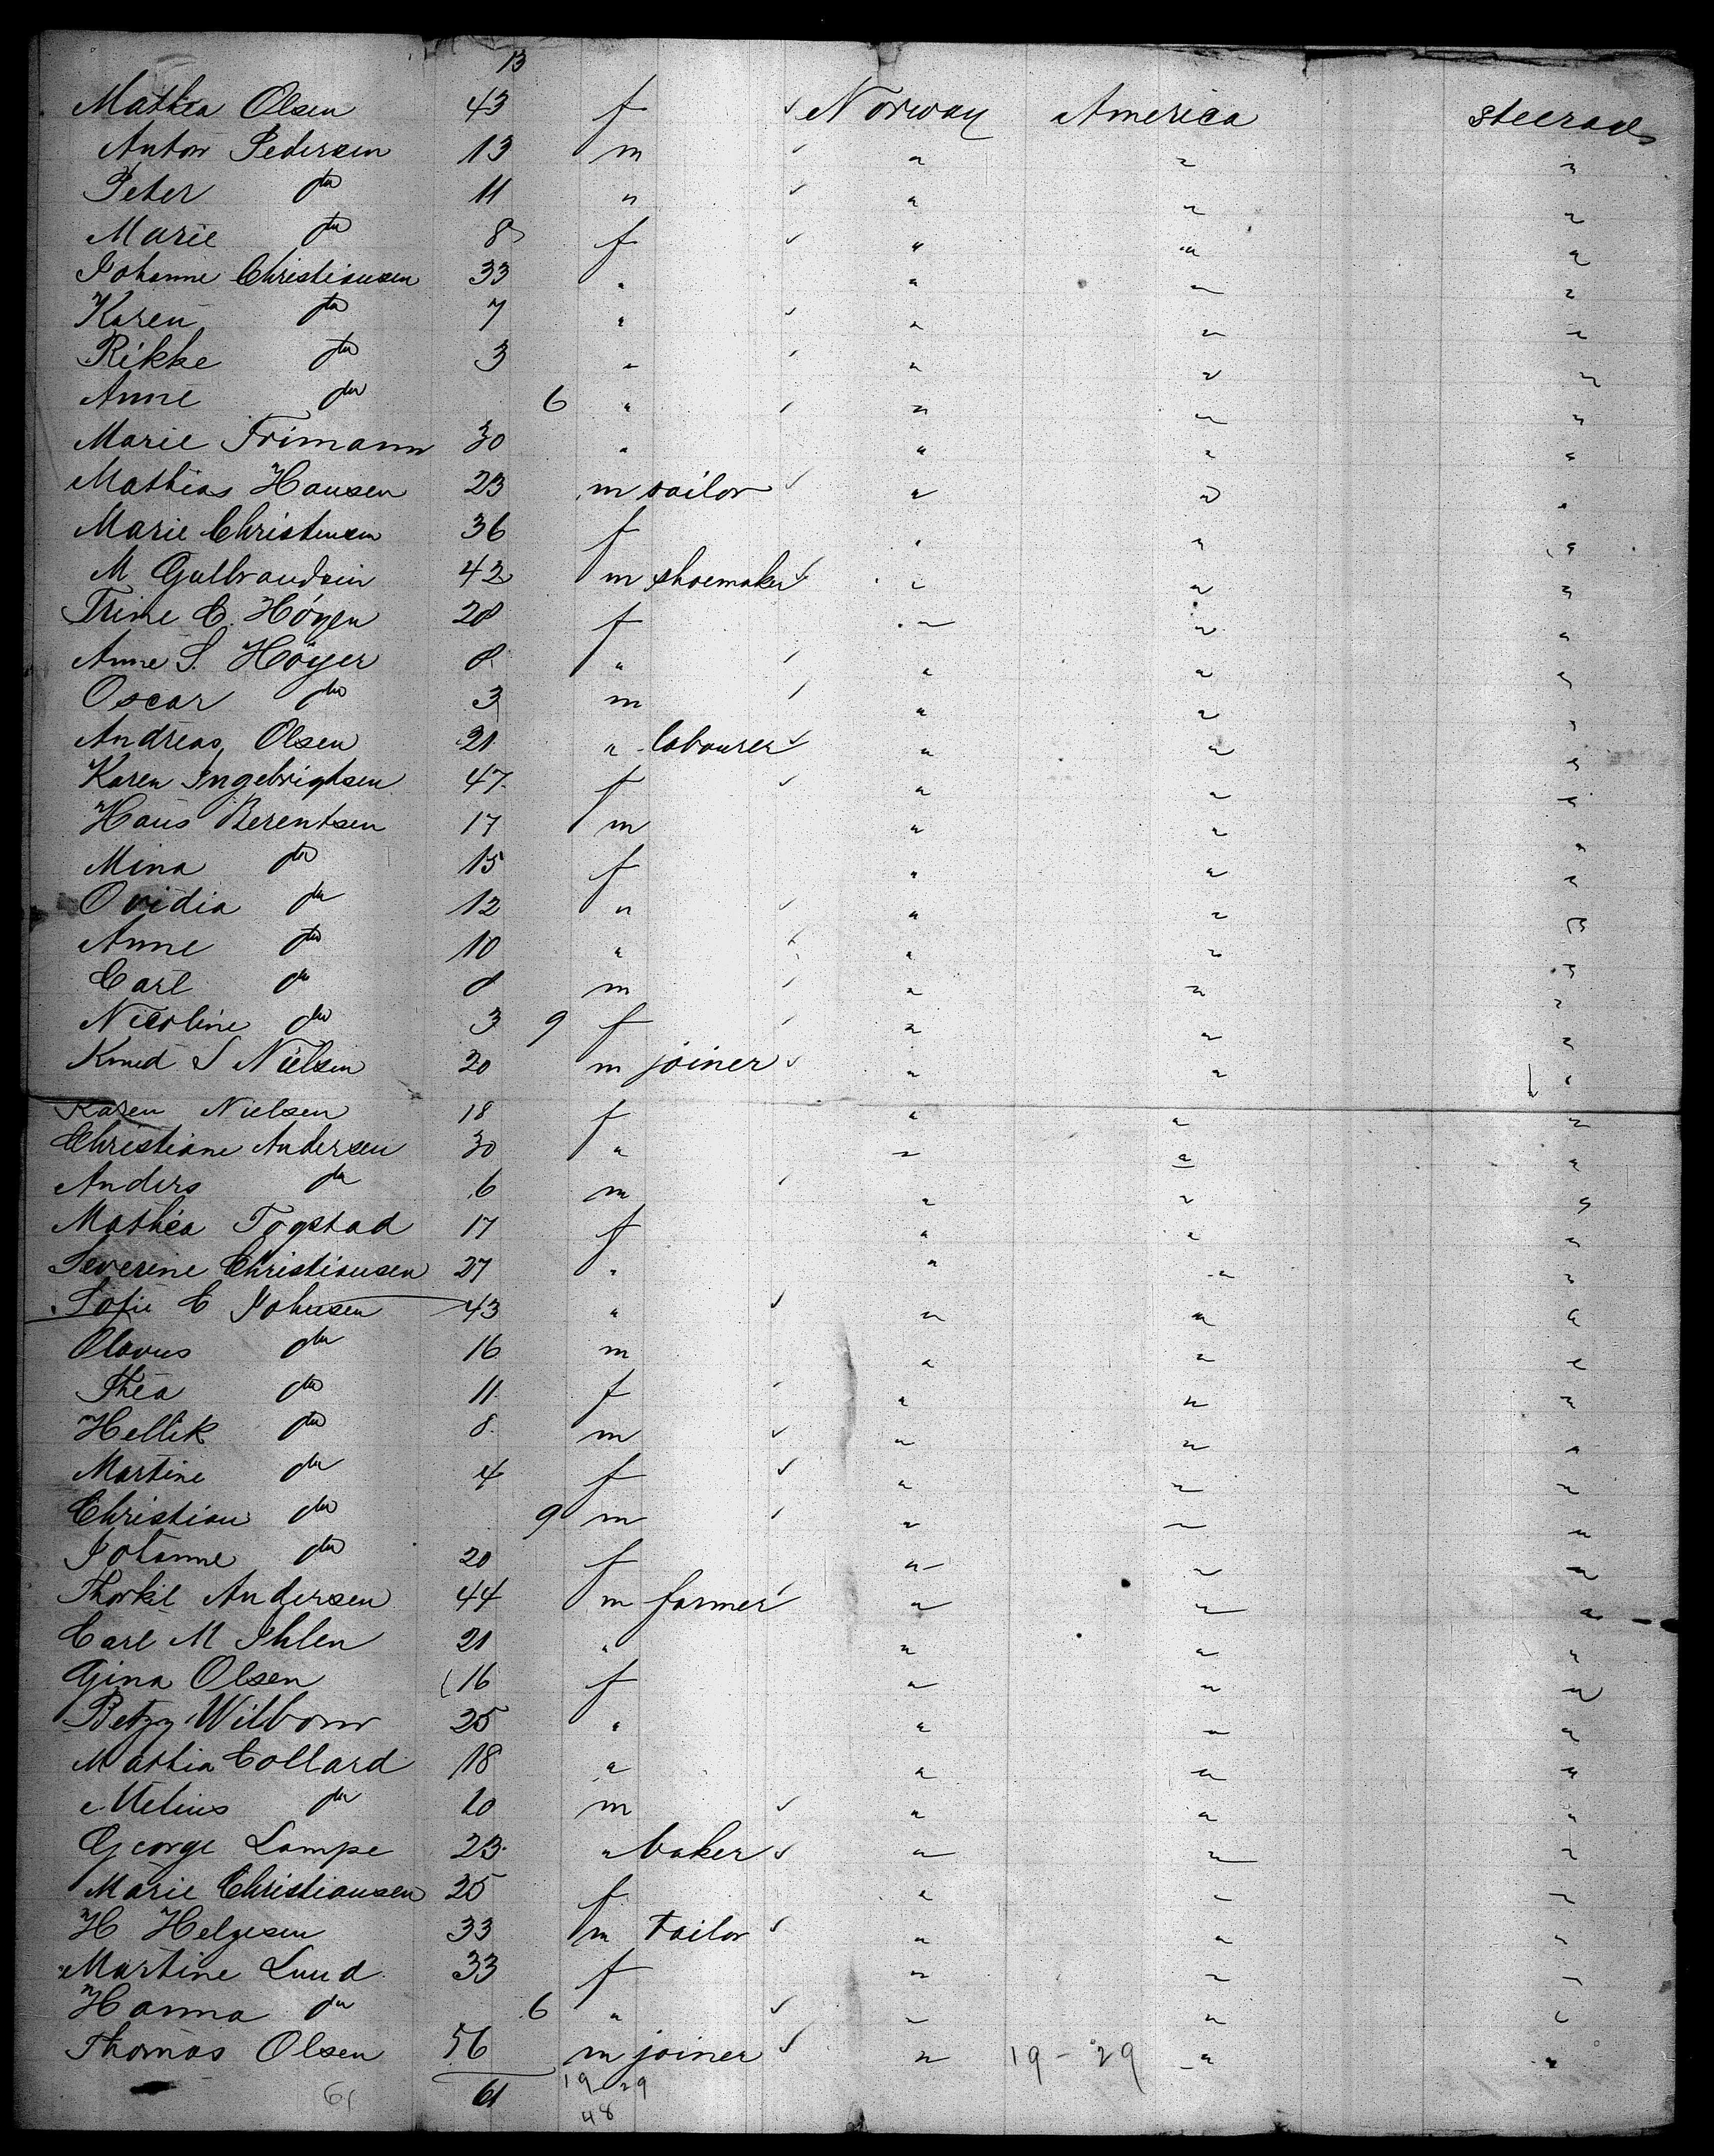 13
Mathea Olsen 43 f ✓ Norway America steerage
Anton Pedersen 13 m ✓ " " "
Peter do 11 " ✓ " " "
Marie do 8 f ✓ " " "
Johanne Christiansen 33 " " " "
Karen do 7 " ✓ " " "
Rikke do 3 " ✓ " " "
Anne do 6 " ✓ " " "
Marie Frimann 30 " " " "
Mathias Hansen 23 m sailor ✓ " " "
Marie Christensen 36 f " " "
M Gulbrandsin 42 m shoemaker ✓ " " "
Trine C. Höyen 28 f " " "
Anne S. Höyer 8 " ✓ " " "
Oscar do 3 m ✓ " " "
Andreas Olsen 21 " labourer ✓ " " "
Karen Ingebrigtsen 47 f ✓ " " "
Hans Berentsen 17 m " " "
Mina do 15 f " " "
Ovidia do 12 " ✓ " " "
Anne do 10 " ✓ " " "
Carl do 8 m ✓ " " "
Nicoline do 3 9 f ✓ " " "
Knud S Nielsen 20 m joiner ✓ " " "
Karen Nielsen 18 f " " "
Christiane Andersen 30 " " " "
Anders do 6 m ✓ " " "
Mathea Togstad 17 f " " "
Severine Christiansen 27 " " " "
Sofie C Johnsen 43 " ✓ " " "
Olavus do 16 m " " "
Thea do 11 f ✓ " " "
Hellik do 8 m ✓ " " "
Martine do 4 f ✓ " " "
Christian do 9 m ✓ " " "
Johanne do 20 f " " "
Thorkil Andersen 44 m farmer ✓ " " "
Carl M Ihlen 21 " " " "
Gina Olsen 16 f " " "
Betzy Wilborn 25 " " " "
Mathia Collard 18 " " " "
Melius do 10 m ✓ " " "
George Lampe 23 " baker ✓ " " "
Marie Christiansen 25 f " " "
H Helgesen 33 m tailor ✓ " " "
Martine Lund 33 f " " "
Hanna do 6 " ✓ " " "
Thomas Olsen 56 m joiner ✓ " 19-29 " "
61 61 19 29
48